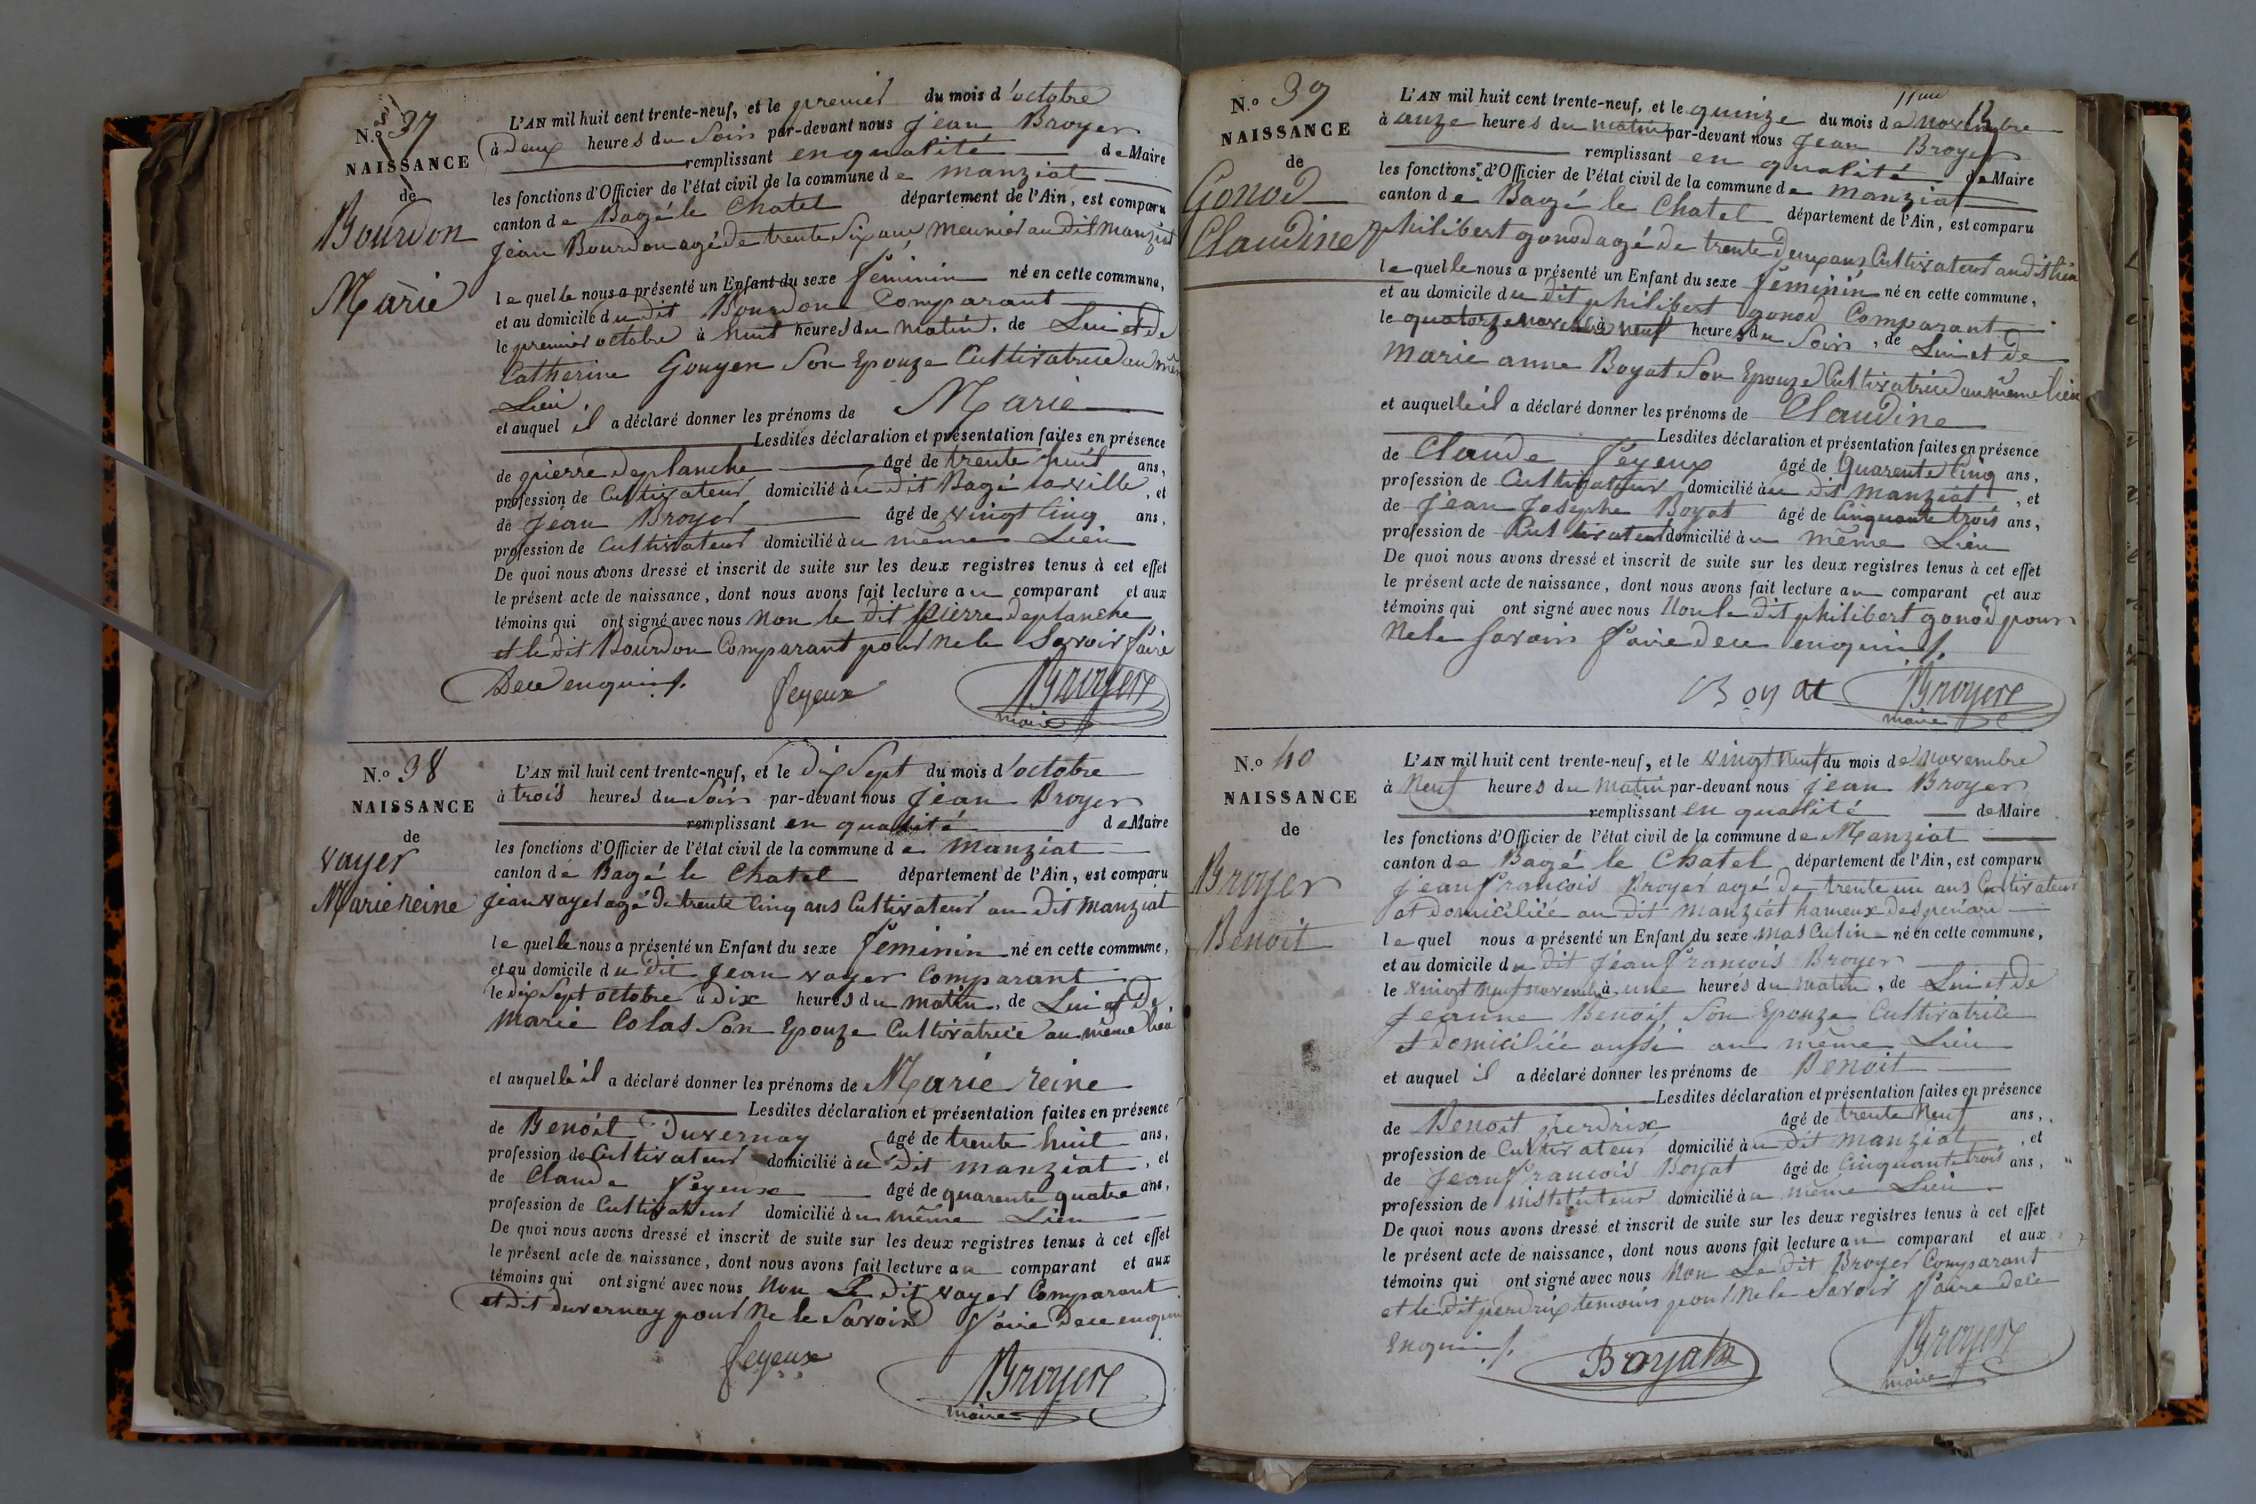 N.o 37
NAISSANCE
de
Bourdon
Marie
L'AN mil huit cent trente-neuf, et le premier du mois d'octobre
à deux heures du Soir par-devant nous Jean Broyer
remplissant en qualité de Maire
les fonctions d'Officier de l'état civil de la commune de manziat
canton de Bagé le Chatel département de l'Ain, est comparu
Jean Bourdon agé de trente Six ans meunier au dit Manziat
lequel le nous a présenté un Enfant du sexe féminin né en cette commune,
et au domicile du dit Bourdon Comparant
le premier octobre à huit heures du matin, de Lui et de
Catherine Gouyen Son Epouze Cultivatrice au
Lieu
et auquel il a déclaré donner les prénoms de Marie
Lesdites déclaration et présentation faites en présence
de pierre deplanche âgé de trente huit ans,
profession de Cultivateur domicilié au dit Bagé la ville, et
de Jean Broyer âgé de vingt Cinq ans,
profession de Cultivateur domicilié au même Lieu
De quoi nous avons dressé et inscrit de suite sur les deux registres tenus à cet effet
le présent acte de naissance, dont nous avons fait lecture au comparant et aux
témoins qui ont signé avec nous Non le dit pierre deplanche
et le dit Bourdon Comparant pour ne le Savoir faire
Dece enquis /.
feyeux Broyere
maire
N.o 38
NAISSANCE
de
vayer
Marie reine
L'AN mil huit cent trente-neuf, et le dix Sept du mois d'octobre
à trois heures du Soir par-devant nous Jean Broyer
remplissant en qualité de Maire
les fonctions d'Officier de l'état civil de la commune de manziat
canton de Bagé le Chatel département de l'Ain, est comparu
Jean vayer agé de trente Cinq ans Cultivateur au dit manziat
lequel le nous a présenté un Enfant du sexe féminin né en cette commune,
et au domicile du dit Jean vayer Comparant
le dix Sept octobre à dix heures du matin, de Lui et de
Marie Colas Son Epouze Cultivatrice au même lieu
et auquel le il a déclaré donner les prénoms de Marie reine
Lesdites déclaration et présentation faites en présence
de Benoit Duvernay âgé de trente huit ans,
profession de Cultivateur domicilié au dit manziat, et
de Claude feyeux âgé de quarente quatre ans,
profession de Cultivateur domicilié au même Lieu
De quoi nous avons dressé et inscrit de suite sur les deux registres tenus à cet effet
le présent acte de naissance, dont nous avons fait lecture au comparant et aux
témoins qui ont signé avec nous Non Le dit vayer Comparant
et dit duvernay pour Ne le Savoir faire Dece enquis
feyeux Broyere
maire
N.o 39
NAISSANCE
de
Gonod
Claudine
L'AN mil huit cent trente-neuf, et le quinze du mois de novembre
à onze heures du matin par-devant nous Jean Broyer
remplissant en qualité de Maire
les fonctions d'Officier de l'état civil de la commune de manziat
canton de Bagé le Chatel département de l'Ain, est comparu
philibert gonod agé de trente deux ans Cultivateur au dit lieu
lequel le nous a présenté un Enfant du sexe féminin né en cette commune,
et au domicile du dit philibert gonod Comparant
le quatorze novembre à neuf heures du Soir, de Lui et de
Marie anne Boyat Son Epouze Cultivatrice au même lieu
et auquel le il a déclaré donner les prénoms de Claudine
Lesdites déclaration et présentation faites en présence
de Claude feyeux âgé de quarente Cinq ans,
profession de Cultivateur domicilié au dit manziat, et
de Jean Josephe Boyat âgé de Cinquante trois ans,
profession de Cultivateur domicilié au même Lieu
De quoi nous avons dressé et inscrit de suite sur les deux registres tenus à cet effet
le présent acte de naissance, dont nous avons fait lecture au comparant et aux
témoins qui ont signé avec nous Non le dit philibert gonod pour
Ne le Savoir faire dece enquis /.
Boyat Broyere
maire
N.o 40
NAISSANCE
de
Broyer
Benoit
L'AN mil huit cent trente-neuf, et le vingt neuf du mois de novembre
à Neuf heures du matin par-devant nous Jean Broyer
remplissant en qualité de Maire
les fonctions d'Officier de l'état civil de la commune de Manziat
canton de Bagé le Chatel département de l'Ain, est comparu
Jean francois Broyer agé de trente un ans Cultivateur
et domiciliée au dit manziat hameux
lequel nous a présenté un Enfant du sexe masculine né en cette commune,
et au domicile du dit Jean francois Broyer
le vingt neuf novembre à une heures du matin, de Lui et de
Jeanne Benoit Son Epouze Cultivatrice
et domiciliée aussi au même Lieu
et auquel il a déclaré donner les prénoms de Benoit
Lesdites déclaration et présentation faites en présence
de Benoit perdrix âgé de trente Neuf ans,
profession de Cultivateur domicilié au dit manziat, et
de Jean francois Boyat âgé de Cinquante trois ans,
profession de instituteur domicilié au même Lieu
De quoi nous avons dressé et inscrit de suite sur les deux registres tenus à cet effet
le présent acte de naissance, dont nous avons fait lecture au comparant et aux
témoins qui ont signé avec nous Non Le dit Broyer Comparant
et le dit perdrix temoins pour Ne le Savoir faire dece
Enquis /.
Boyat Broyere
maire